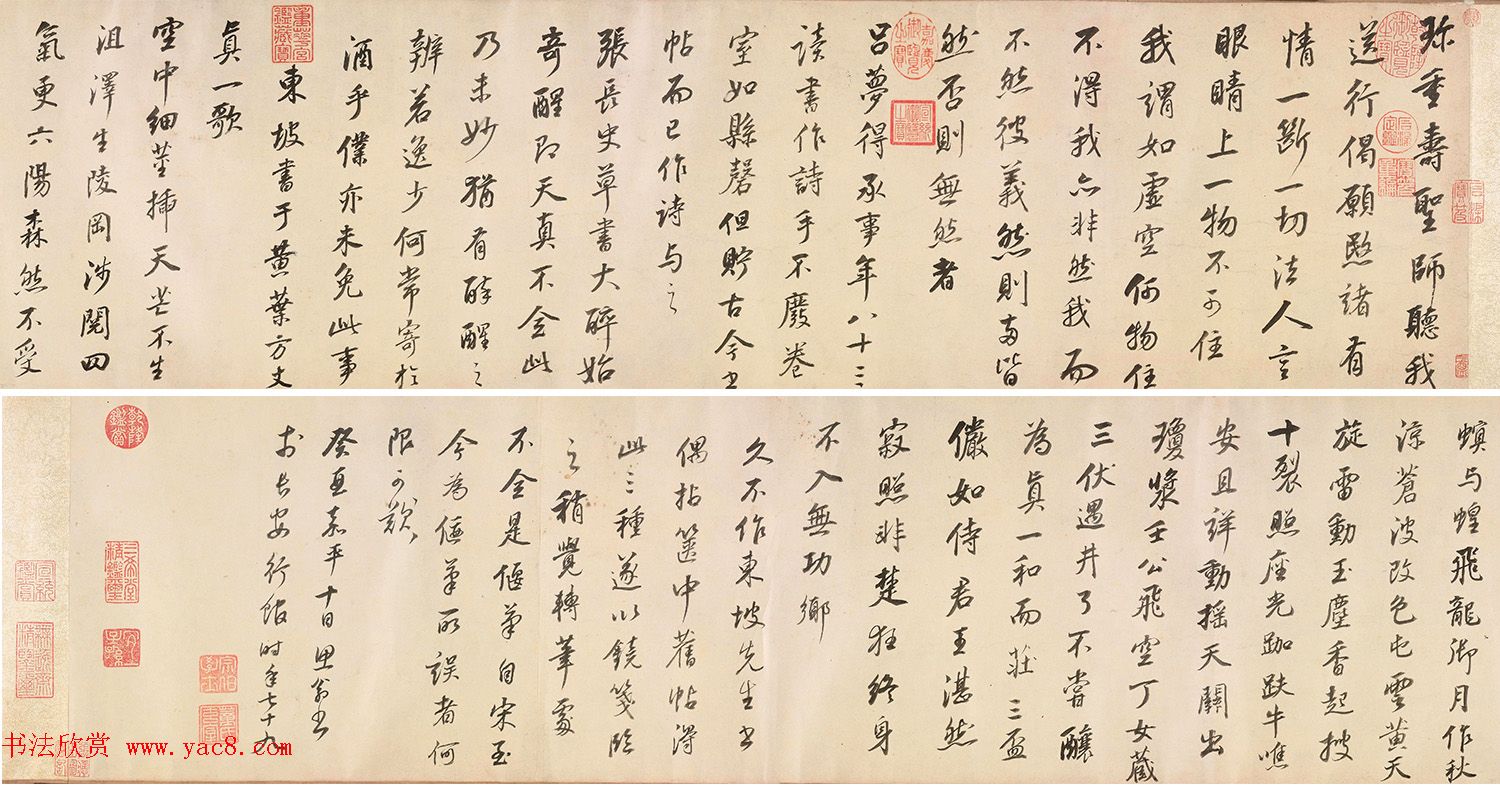 珎重壽聖師聽我
送行偈願愍諸有
情一斷一切法人言
眼睛上一物不可住
我謂如虛空何物住
不得我亦非然我而
不然彼義然則兩皆
然否則無然者
呂夢得承事年八十三
读書作詩手不廢卷
室如縣磬但貯古今書
帖而已作詩与之
張長史草書大醉始
奇醒即天真不全此
乃未妙猶有醉醒之
辨若逸少何常寄於
酒乎僕亦未免此事
東坡書于黄葉方丈
真一歌
空中細莖插天芒不生
沮澤生陵岡涉閱四
氣更六陽森然不受
螟与蝗飛龍御月作秋
涼蒼波改色屯雲黄天
旋雷動玉塵香起披
十裂照座光跏趺牛噍
安且詳動摇天關出
瓊漿壬公飛空丁女藏
三伏遇井了不嘗釀
為真一和而莊三盃
儼如侍君王湛然
寂照非楚狂終身
不入無功鄉
久不作東坡先生書
偶拈篋中舊帖得
此三種遂以鏡箋臨
之稍覺轉筆處
不全是偃筆自宋至
今為偃筆所誤者何
限可歎
癸酉嘉平十日思翁書
於長安行館时年七十九
乾隆鑑賞
三希堂精鑑璽
宜子孫
嘉慶御覽之寶
书法欣赏 www.yac8.com